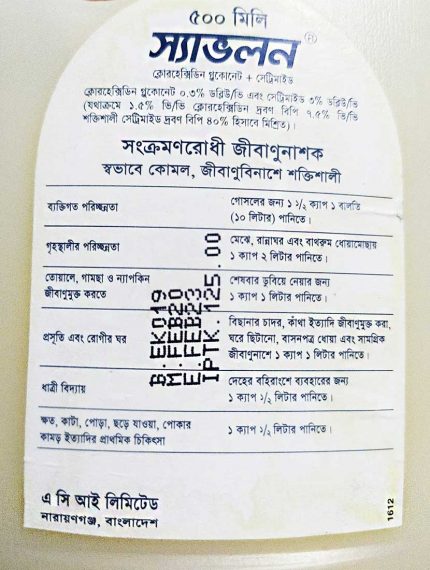 ৫০০ মিলি
স্যাভলন®
ক্লোরহেক্সিডিন গ্লুকোনেট + সেট্রিমাইড
ক্লোরহেক্সিডিন গ্লুকোনেট ০.৩% ডব্লিউ/ভি এবং সেট্রিমাইড ৩% ডব্লিউ/ভি
(যথাক্রমে ১.৫% ভি/ভি ক্লোরহেক্সিডিন দ্রবণ বিপি ৭.৫% ভি/ভি
শক্তিশালী সেট্রিমাইড দ্রবণ বিপি ৪০% হিসাবে মিশ্রিত)।
সংক্রমণরোধী জীবাণুনাশক
স্বভাবে কোমল, জীবাণুবিনাশে শক্তিশালী
ব্যক্তিগত পরিচ্ছন্নতা
গোসলের জন্য ১ ১/২ ক্যাপ ১ বালতি
(১০ লিটার) পানিতে।
গৃহস্থালীর পরিচ্ছন্নতা
মেঝে, রান্নাঘর এবং বাথরুম ধোয়ামোছায়
১ ক্যাপ ২ লিটার পানিতে।
তোয়ালে, গামছা ও ন্যাপকিন
জীবাণুমুক্ত করতে
শেষবার ডুবিয়ে নেয়ার জন্য
১ ক্যাপ ১ লিটার পানিতে।
প্রসূতি এবং রোগীর ঘর
বিছানার চাদর, কাঁথা ইত্যাদি জীবাণুমুক্ত করা,
ঘরে ছিটানো, বাসনপত্র ধোয়া এবং সামগ্রিক
জীবাণুনাশে ১ ক্যাপ ১ লিটার পানিতে।
ধাত্রী বিদ্যায়
দেহের বহিরাংশে ব্যবহারের জন্য
১ ক্যাপ ১/২ লিটার পানিতে।
ক্ষত, কাটা, পোড়া, ছড়ে যাওয়া, পোকার
কামড় ইত্যাদির প্রাথমিক চিকিৎসা
১ ক্যাপ ১/২ লিটার পানিতে।
B.EK019
M.FEB20
E.FEB23
IPTK.125.00
এ সি আই লিমিটেড
নারায়ণগঞ্জ, বাংলাদেশ
1612